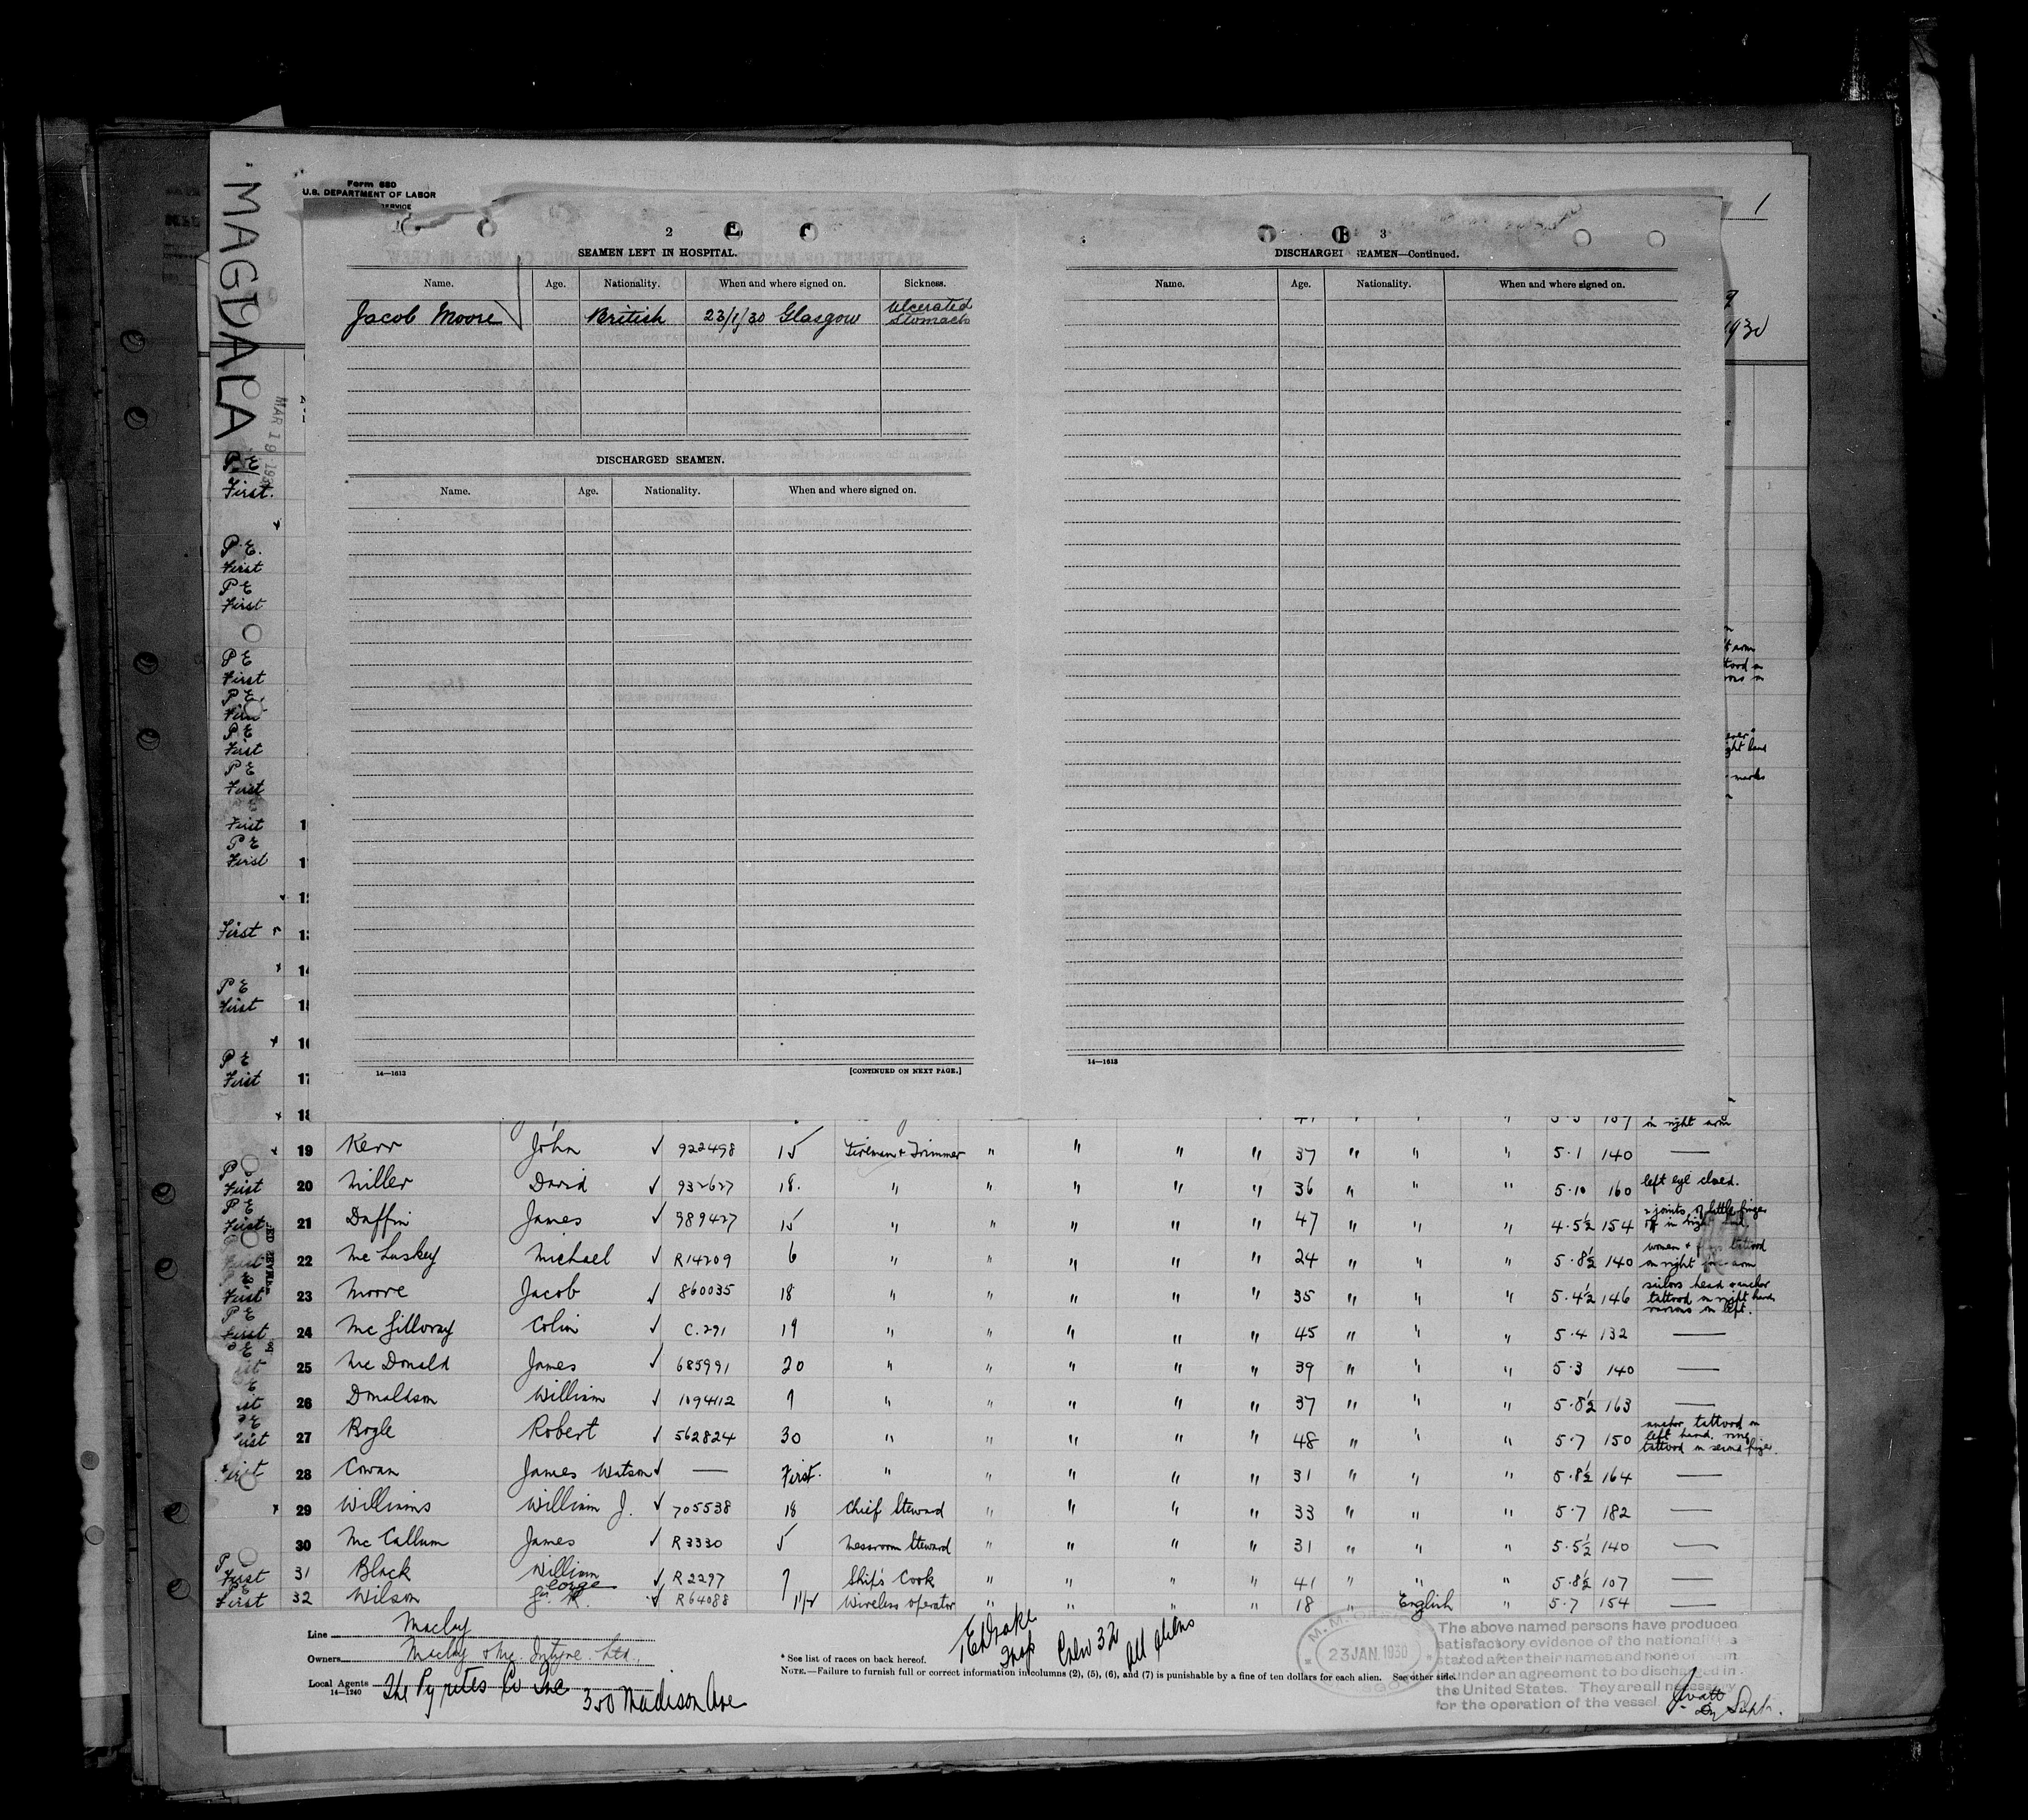 MAGDALA
MAR 19 193
Form 680
U.S. DEPARTMENT OF LABOR
SERVICE
1
1930
2
SEAMEN LEFT IN HOSPITAL.
Name. Age. Nationality. When and where signed on. Sickness.
Jacob Moore British 23/1/30 Glasgow Ulcerated Stomach
DISCHARGED SEAMEN.
Name. Age. Nationality. When and where signed on.
14—1613
[CONTINUED ON NEXT PAGE.]
3
DISCHARGED SEAMEN—Continued.
Name. Age. Nationality. When and where signed on.
14—1613
P.E.
First.
P.E.
First
P E
First
P E
First
P E
First
P E
First
P E
First
First
P E
First
First
P E
First
P E
First
in right arm
19 Kerr John √ 922498 15 Fireman & Trimmer " " " " 37 " " " 5.1 140 —
First 20 Miller David √ 932627 18. " " " " " 36 " " " 5.10 160 left eye closed.
P E
First 21 Daffin James √ 989427 15 " " " " " 47 " " " 4.5½ 154 2 joints of little finger off in right hand.
22 Mc Luskey Michael √ R14209 6 " " " " " 24 " " " 5.8½ 140 women + tattood on right fore arm
First 23 Moore Jacob √ 860035 18 " " " " " 35 " " " 5.4½ 146 sailors head & anchor tattood on right hand on left.
P E
First 24 Mc Gilloray Colin √ C.291 19 " " " " " 45 " " " 5.4 132 —
25 Mc Donald James √ 685991 20 " " " " " 39 " " " 5.3 140 —
26 Donaldson William √ 1094112 7 " " " " " 37 " " " 5.8½ 163 —
27 Bogle Robert √ 562824 30 " " " " " 48 " " " 5.7 150 anchor tattood on left hand. ring tattood on second finger.
28 Cowan James Watson √ — First. " " " " " 31 " " " 5.8½ 164 —
29 Williams William J. √ 705538 18 Chief Steward " " " " 33 " " " 5.7 182 —
30 Mc Callum James √ R3330 5 Messroom Steward " " " " 31 " " " 5.5½ 140 —
First 31 Black William √ R2297 7 Ship's Cook " " " " 41 " " " 5.8½ 107 —
P E
First 32 Wilson George √ R64088 1½ Wireless operator " " " " 18 " English " 5.7 154 —
Line Maclay
Owners Maclay & Mc. Intyre. Ltd.
Local Agents The Pyrites Co Inc 350 Madison Ave
14—1240
Crew 32 all aliens
* See list of races on back hereof.
NOTE.—Failure to furnish full or correct information in columns (2), (5), (6), and (7) is punishable by a fine of ten dollars for each alien. See other side.
23 JAN. 1930
The above named persons have produced
satisfactory evidence of the nationalities
stated after their names and none of them
is under an agreement to be discharged in
the United States. They are all necessary
for the operation of the vessel